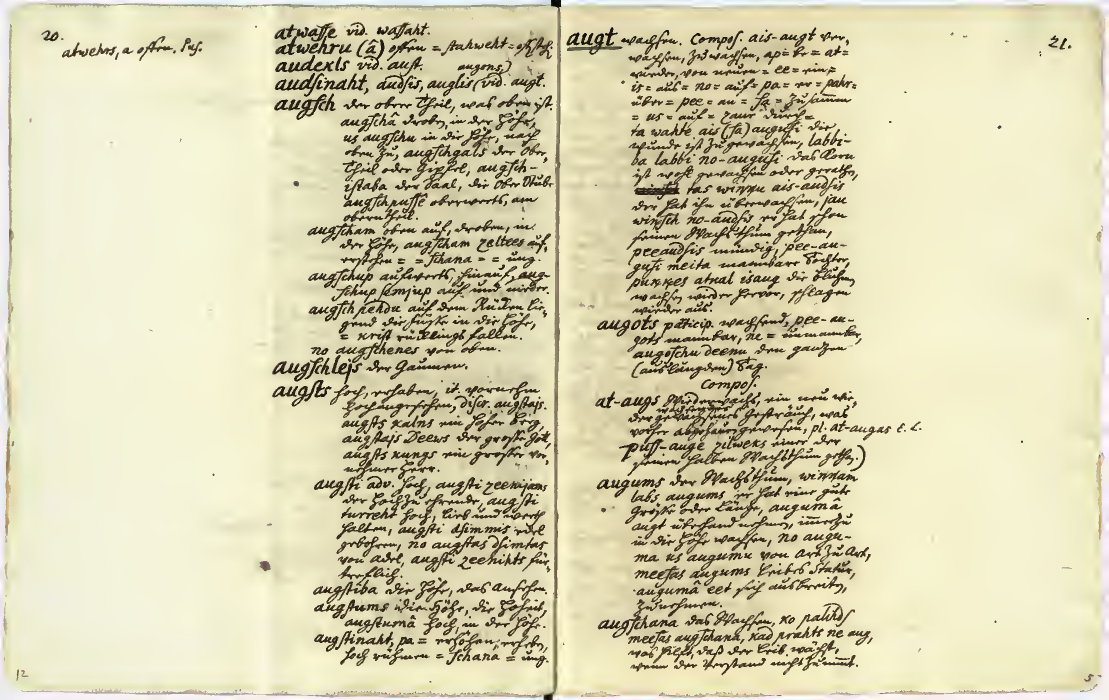 20.
atwehrs, a offen.
atwasse vid. wassaht.
atwehru (â) offen = stahweht = offstehn
audekls vid. aust. augons)
audsinaht, audsis, auglis (vid. augt.
augsch der obere Theil, was oben ist.
augschâ droben, in der Höhe,
us augschu in die Höhe, nach
oben zu, augschgals der Ober,
Theil oder Gipfel, augsch-
istaba der Saal, die Ober Stube
augschpusse oberwerts, am
obern Theil.
augscham oben auf, droben, in
der Höhe, augscham zeltees auf,
erstehen = = schana = = ung.
augschup aufwerts, hinauf, aug-
schup semjup auf und nieder.
augschpehdu auf dem Rücken lie-
gend die Füsse in die Höhe,
= krist rücklings fallen.
no augschenes von oben.
augschlejs der Gaumen.
augsts hoch, erhaben, it. vornehm
hochangesehen, augstajs.
augsts kalns ein hoher Berg,
augstajs Deews der grosse Gott,
augsts kungs ein grosser vor,
nehmer Herr.
augsti adv. hoch, augsti zeenijams
der hochzu ehrende, augsti
turreht hoch, lieb und werth
halten, augsti dsimmis edel
gebohren, no augstas dsimtas
von adel, augsti zeenihts für,
trefflich.
augstiba die Höhe, das Ansehen.
augstums die Höhe, die Hoheit,
augstumâ hoch, in der Höhe.
augstinaht, pa = erhöhen, erheben,
hoch rühmen = schana = ung.
12
21.
augt wachsen. Compos. ais-augt ver,
wachsen, zuwachsen, ap = be = at =
wieder, von neuen = ee = ein =
is = aus = no = auf = pa = er = pahr =
über = pee = an = sa = zusammen
= us = auf = zaur durch =
ta wahte ais (sa) augusi die
Wunde ist zugewachsen, labbi-
ba labbi no-augusi das Korn
ist wohl gewachsen oder gerathen,
tas winnu ais-audsis
der hat ihn überwachsen, jau
winsch no-audsis er hat schon
seinen Wachsthum gethan,
peeaudsis mündig, pee-au-
gusi meita mannbare Tochter,
pukkes atkal isaug die Bluhmen
wachsen wieder hervor, schlagen
wieder aus.
augots particip. wachsend, pee-au-
gots mannbar, ne = unmannbar,
augoschu deenu den gantzen
(auslangden) Tag.
Compos.
at-augs Wiederwachs, ein neu wie,
der gewachsenes Gesträuch, was
vorher abgehauen gewesen, pl. at-augas E. L.
puss-auge zilweks einer der
seinen halben Wachsthum gethan.)
augums der Wachsthum, winnam
labs augums er hat eine gute
Grösse oder Länge, augumâ
augt überhand nehmen, immerzu
in die Höhe wachsen, no augu-
ma us augumu von Art zu Art,
meesas augums Leibes Statur,
augumâ eet sich ausbreiten,
zunehmen.
augschana das Wachsen, ko palihds
meesas augschana, kad prahts ne aug,
was hilft, daß der Leib wächst,
wenn der Verstand nicht zunimmt.
5